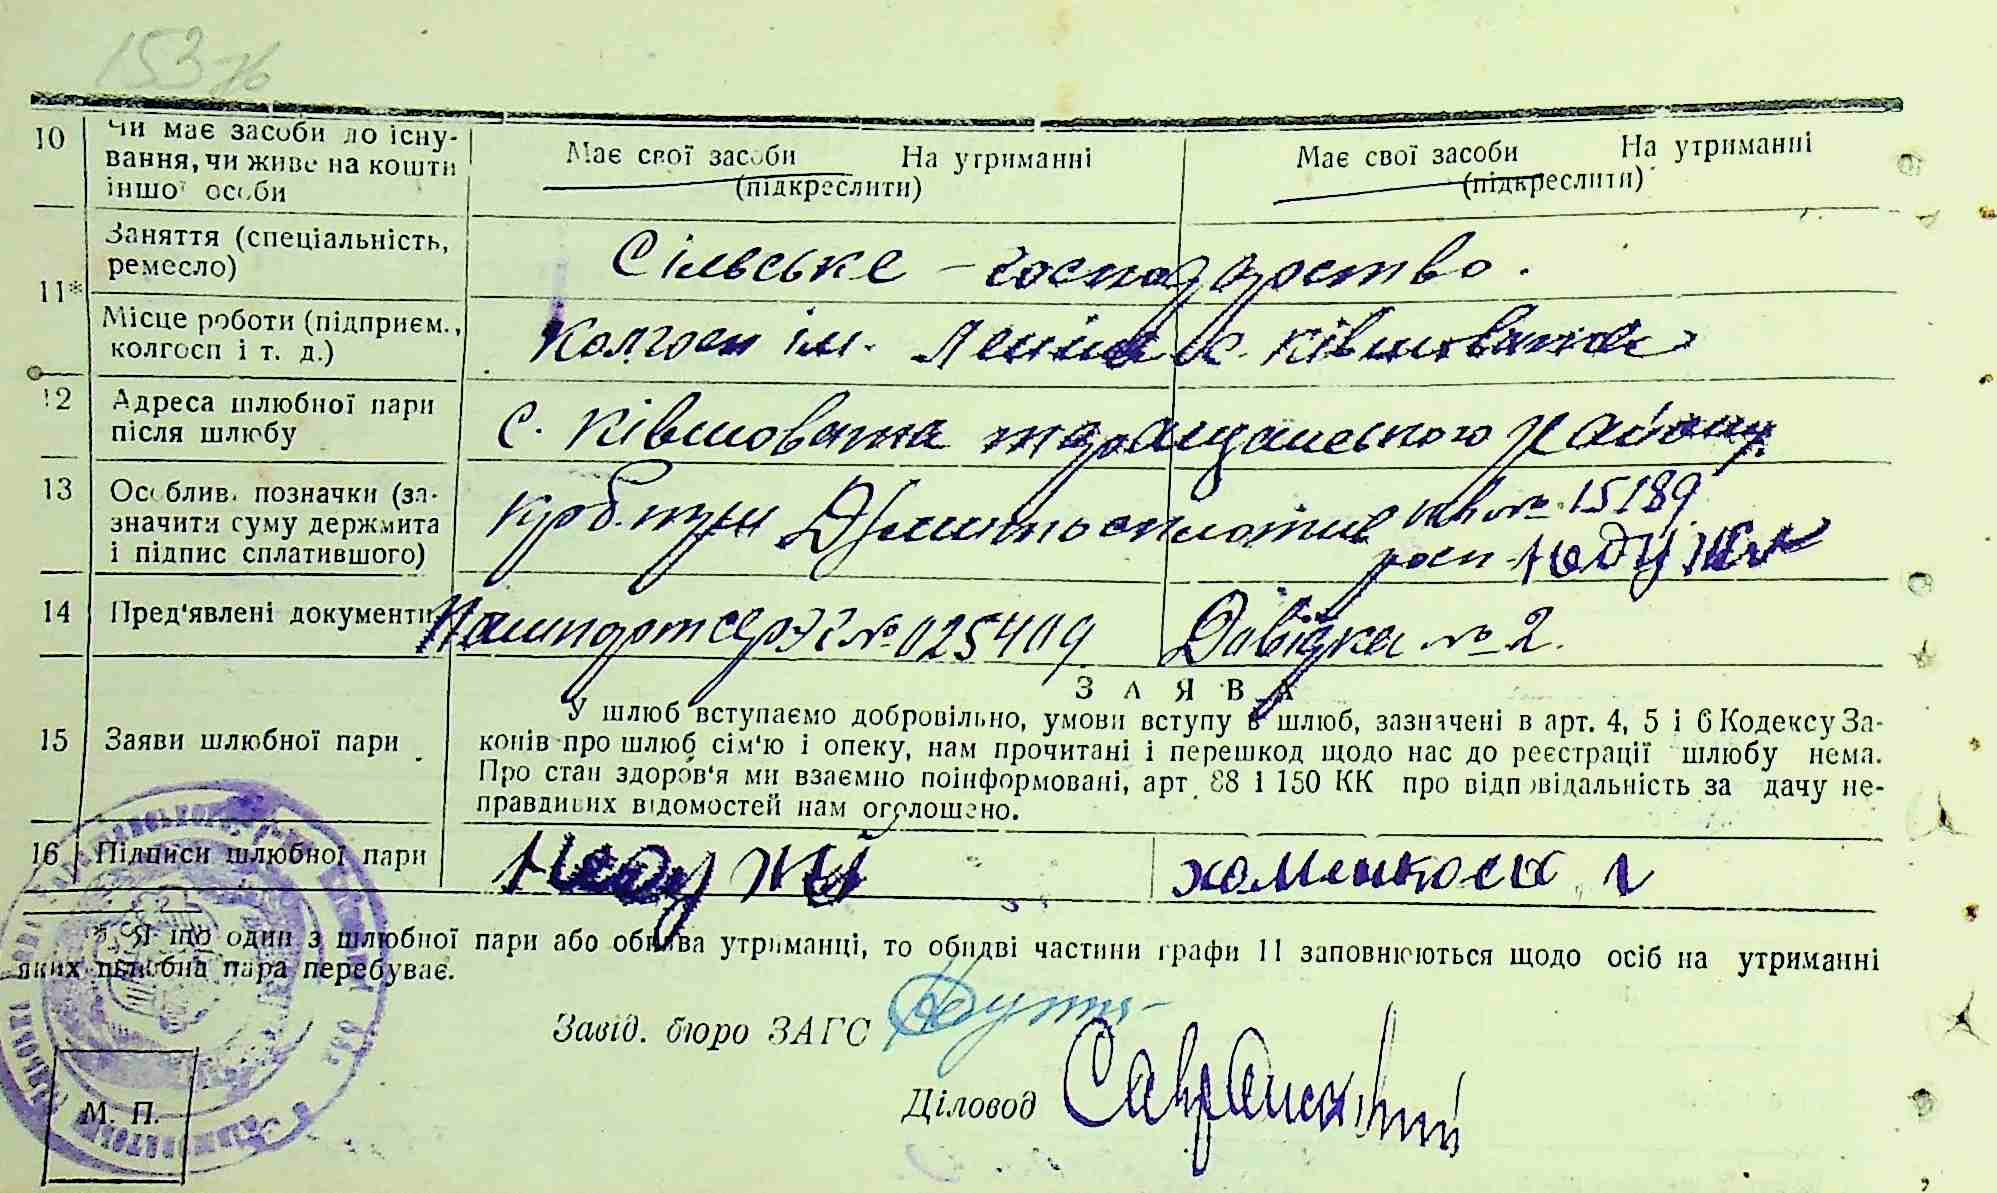 153
10 Чи має засоби до існу-
вання, чи живе на кошти
іншої особи
Має свої засоби На утриманні
(підкреслити)
Має свої засоби На утриманні
(підкреслити)
11*
Заняття (спеціальність,
ремесло)
Сільське - господарство.
Місце роботи (підприєм.,
колгосп і т. д.)
Колгосп ім. Леніна с. Ківшовата
12 Адреса шлюбної пари
після шлюбу
с. Ківшовата таращанського району
13 Особлив. позначки (за-
значити суму держмита
і підпис сплатившого)
№ 15189
14 Пред'явлені документи
Пашпорт сер № 025409
Довідка № 2.
ЗАЯВА
15 Заяви шлюбної пари
У шлюб вступаємо добровільно, умови вступу в шлюб, зазначені в арт. 4, 5 і 6 Кодексу За-
конів про шлюб сім'ю і опеку, нам прочитані і перешкод щодо нас до реєстрації шлюбу нема.
Про стан здоров'я ми взаємно поінформовані, арт. 88 і 150 КК про відповідальність за дачу не-
правдивих відомостей нам оголошено.
16 Підписи шлюбної пари
* Якщо один з шлюбної пари або обидва утриманці, то обидві частини графи 11 заповнюються щодо осіб на утриманні
яких шлюбна пара перебуває.
Завід. бюро ЗАГС
Діловод
М. П.